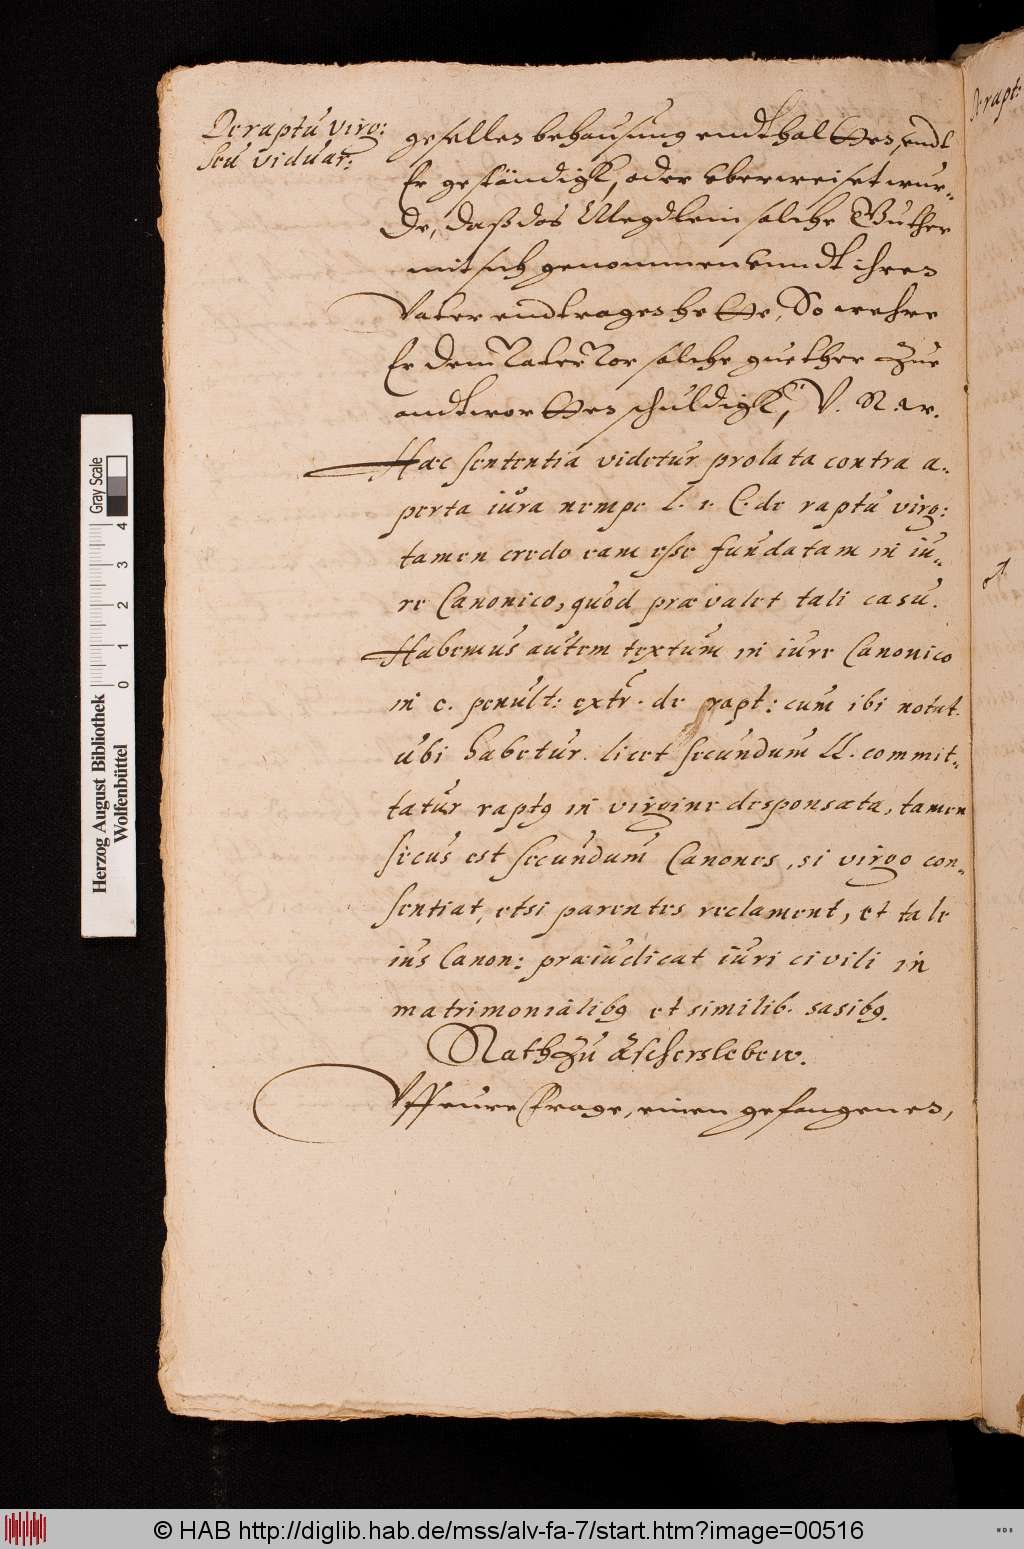 De raptu virg:
seu viduar:
gesellen behausung endthaltten, undt
Er geständigk, oder vberweiset wur-
de, daß das Megdlein solche Güther
mit sich genommen vnndt ihren
Vater endtragen hette, So wehre
Er dem Vater solche guether zue
andtwortten schuldigk, V. R. w.
Hæc sententia videtur prolata contra a-
perta iura nempe l. 1. C. de raptu virg:
tamen credo eam esse fundatam in iu-
re Canonico, quod prævalet tali casu.
Habemus autem textum in iure Canonico
in c. penult: extr. de rapt: cum ibi notat.
ubi habetur. licet secundum ll. commit-
tatur raptq in virgine desponsata, tamen
secus est secundum Canones, si virgo con-
sentiat, etsi parentes reclament, et tale
ius Canon: præiudicat iuri civili in
matrimonialibq et similib. casibq.
Rath zu Aschersleben.
Vff eure frage, einen gefangenen,
De rapt:
Herzog August Bibliothek
Wolfenbüttel
Gray Scale
0 1 2 3 4
© HAB http://diglib.hab.de/mss/alv-fa-7/start.htm?image=00516